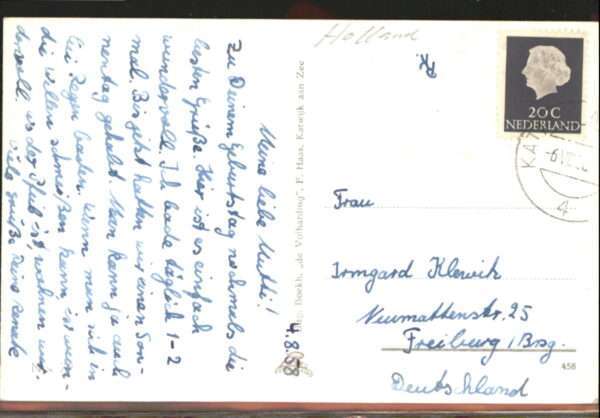 Holland
20 C
NEDERLAND
4
Meine liebe Mutti!
Zu Deinem Geburtstag nochmals die
besten Grüße. Hier ist es einfach
wundervoll. Ich bade täglich 1-2
mal. Bis jetzt hatten wir einen Son-
nentag gehabt. Man kann ja auch
bei Regen baden. Wenn man sich in
die Wellen schmeißen kann ist wun-
dervoll. wo der Pfeil ist, wohnen wir.
Viele Grüße Deine Renate
Boekh. „de Volharding", F. Haas, Katwijk aan Zee
Frau
Irmgard Klewik
Neumattenstr. 25
Freiburg / Brsg.
Deutschland
458